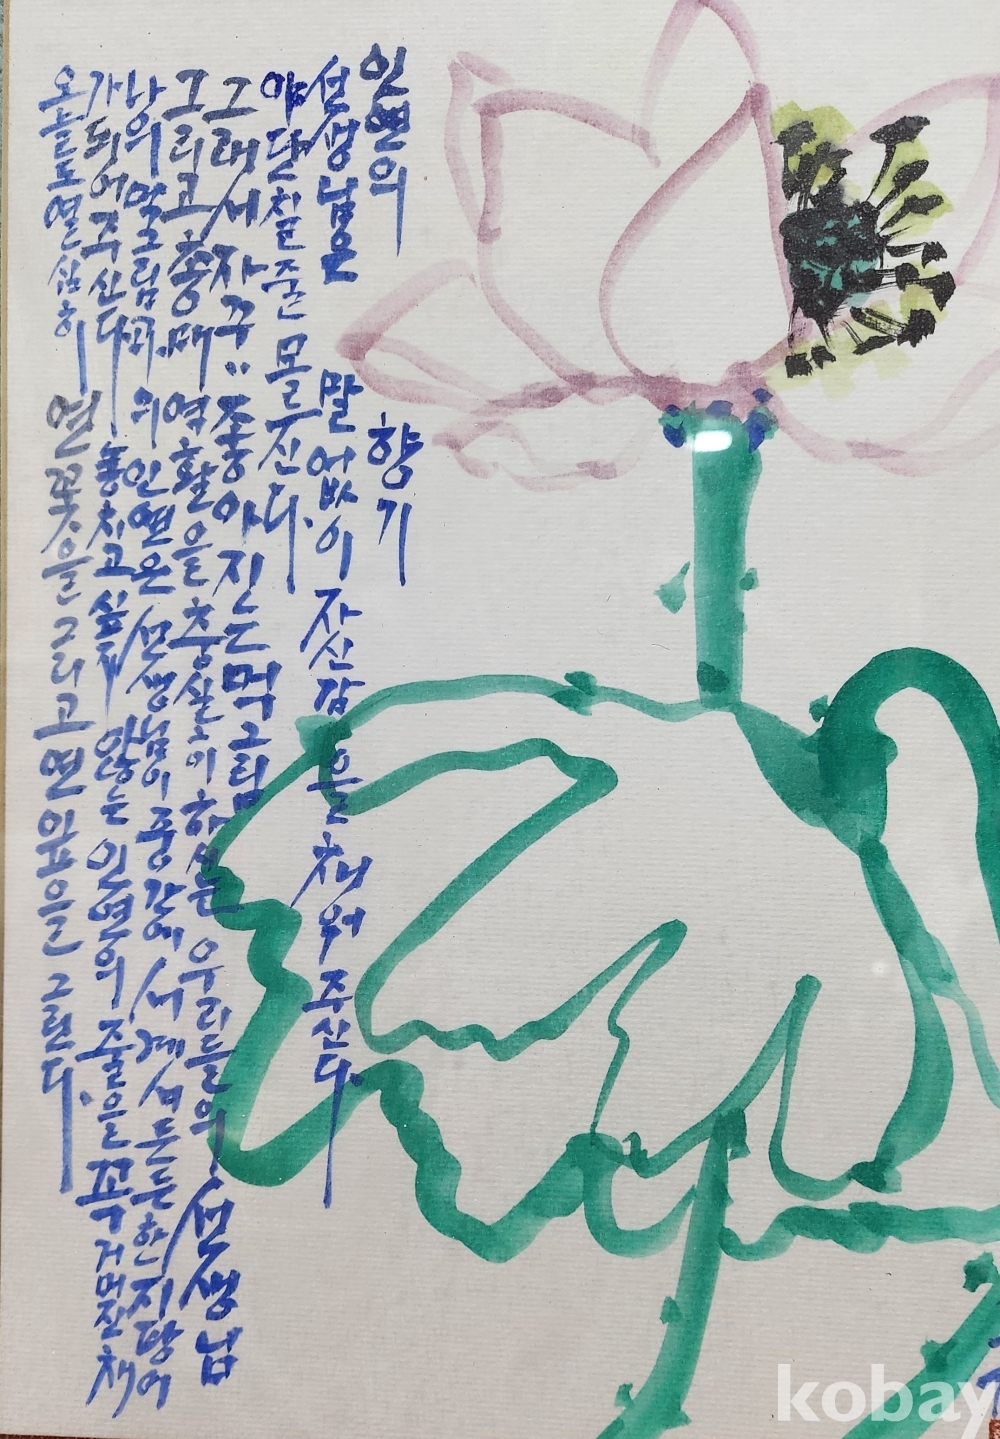 인연의 향기
선생님은 말없이 자신감을 채워주신다.
야단칠 줄 모르신다.
그래서 자꾸 좋아진는 먹그림
그리고 총매 역활을 충실이 하시는 우리들의 선생님
낭의 먹그림과의 인연은 선생님이 중간에 서계서 든든한 지팡이
가 되어 주신다 놓치고 싶지 않는 인연의 줄을 꼭 거머진 채
오늘도 열심히 연꽃을 그리고 연잎을 그린다.
kobay